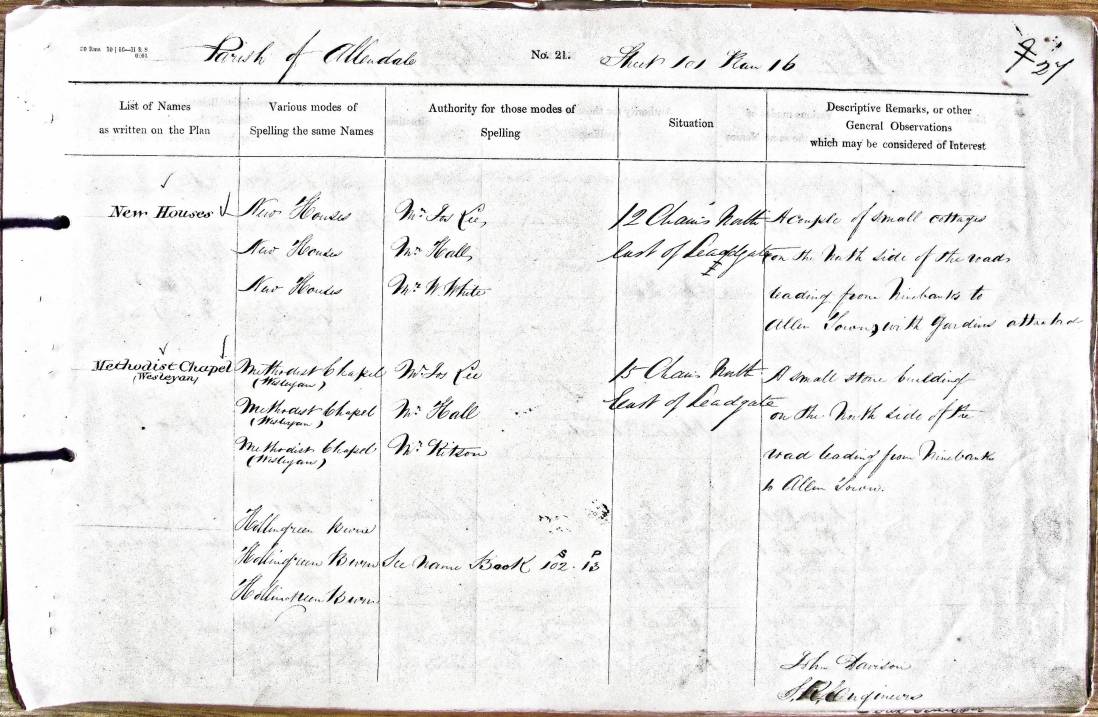 Parish of Allendale No. 21. Sheet 101 Plan 16
27
List of Names
as written on the Plan
Various modes of
Spelling the same Names
Authority for those modes of
Spelling
Situation
Descriptive Remarks, or other
General Observations
which may be considered of Interest
New Houses New Houses Mr. Jos Lee 12 Chains North A couple of small cottages
New Houses Mr. Hall East of Leadgate on the North side of the road
New Houses Mr. W. White leading from Ninebanks to
Allen Town, with Gardens attached
Methodist Chapel Methodist Chapel Mr. Jos Lee 15 Chains North A small stone building
(Wesleyan) (Wesleyan)
Methodist Chapel Mr. Hall East of Leadgate on the North side of the
(Wesleyan)
Methodist Chapel Mr. Kitson road leading from Ninebanks
(Wesleyan)
to Allen Town.
Hollingreen Burn
Hollingreen Burn See Name Book S 102 . P 13
Hollingreen Burn
John Davison
S. R. Engineers